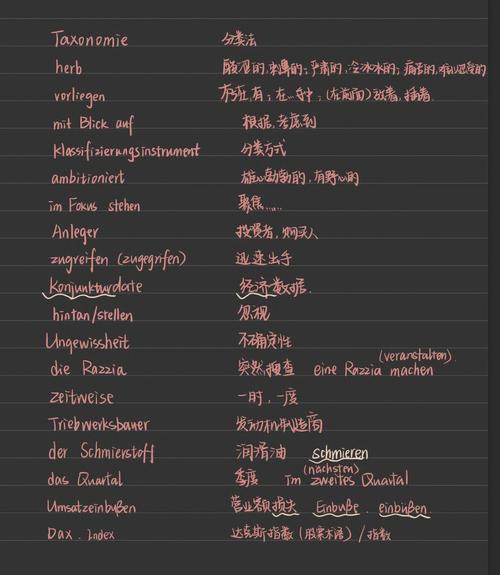 Taxonomie 分类法
herb 酸涩的,刺鼻的;严肃的,冷冰冰的;痛苦的,难以忍受的
vorliegen 存在,有;在…手中;(在前面)放着,插着
mit Blick auf 根据,考虑到
Klassifizierungsinstrument 分类方式
ambitioniert 雄心勃勃的,有野心的
im Fokus stehen 聚焦……
Anleger 投资者,购买人
zugreifen (zugegriffen) 迅速出手
Konjunkturdate 经济数据.
hintan/stellen 忽视
Ungewissheit 不确定性
(veranstalten)
die Razzia 突然搜查 eine Razzia machen
zeitweise 一时,一度
Triebwerksbauer 发动机制造商
der Schmierstoff 润滑油 schmieren
(nächsten)
das Quartal 季度 im zweites Quartal
Umsatzeinbußen 营业额损失 Einbuße. einbüßen.
Dax. Index 达克斯指数(股票术语)/指数